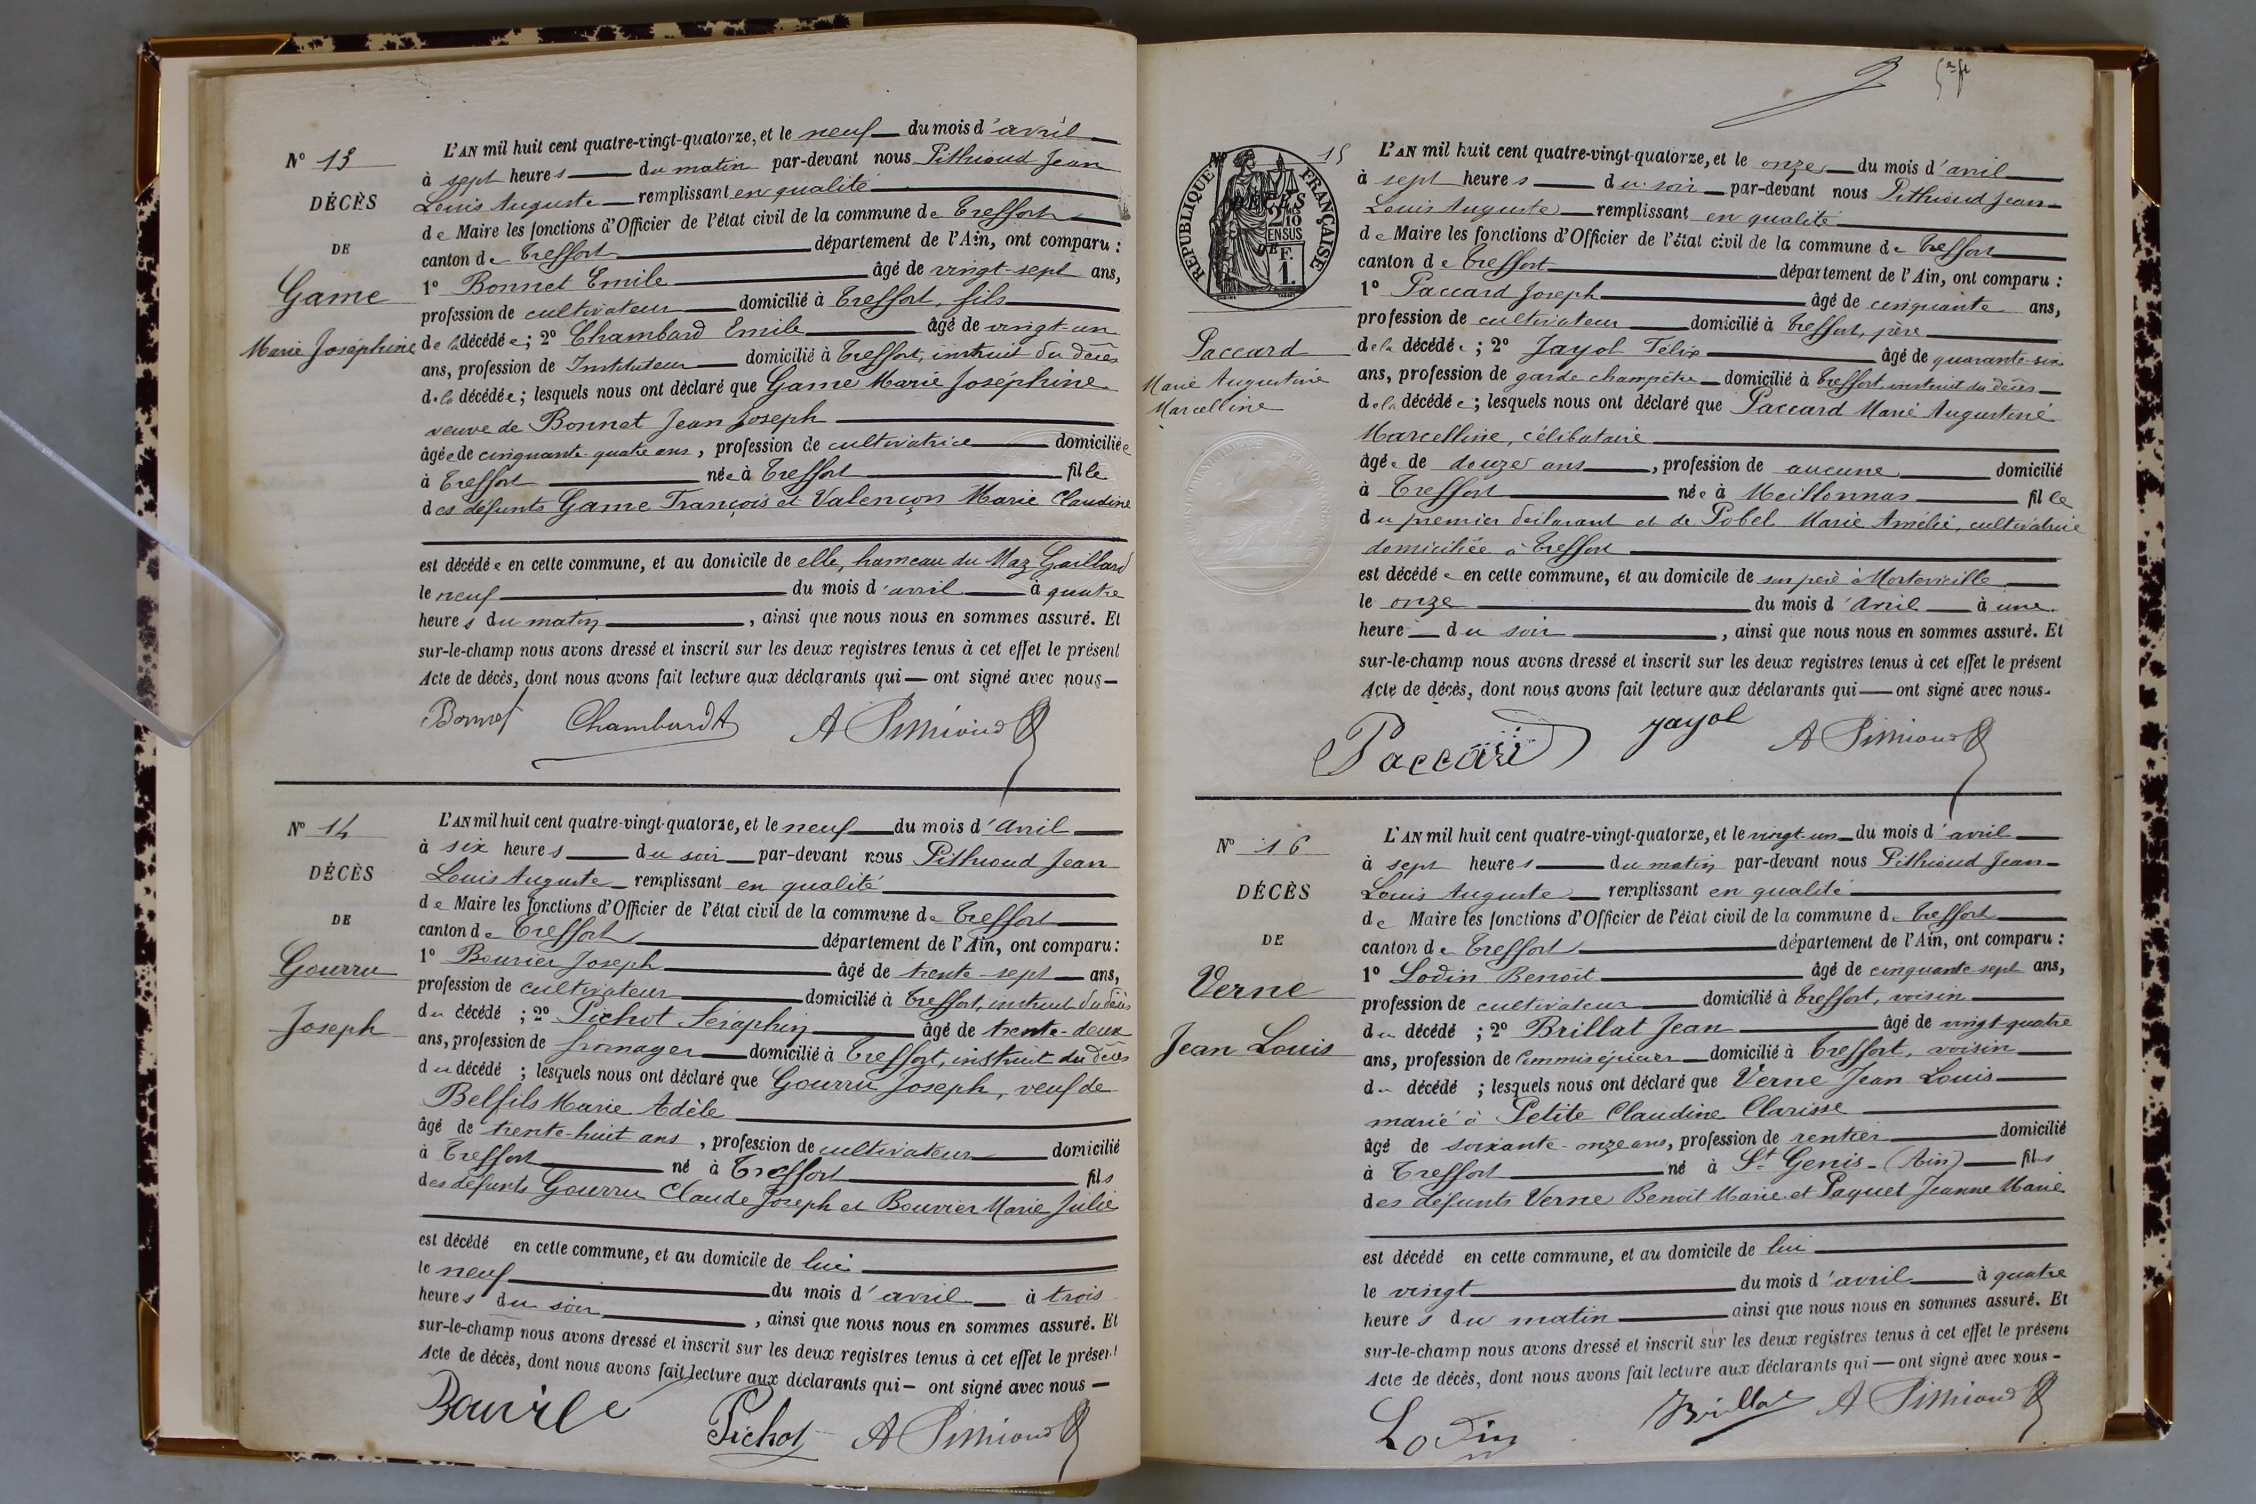 L'AN mil huit cent quatre-vingt-quatorze, et le neuf du mois d'avril
N° 13
à sept heures du matin par-devant nous Pithioud Jean
Louis Auguste remplissant en qualité
DÉCÈS
de Maire les fonctions d'Officier de l'état civil de la commune de Treffort
DE
canton de Treffort département de l'Ain, ont comparu :
Game
1° Bonnet Emile âgé de vingt-sept ans,
profession de cultivateur domicilié à Treffort, fils
Marie Joséphine
de la décédée ; 2° Chambard Emile âgé de vingt-un
ans, profession de Instituteur domicilié à Treffort, instruit du décès
de la décédée ; lesquels nous ont déclaré que Game Marie Joséphine
veuve de Bonnet Jean Joseph
âgée de cinquante-quatre ans, profession de cultivatrice domiciliée
à Treffort née à Treffort fille
des défunts Game François et Valençon Marie Claudine
est décédée en cette commune, et au domicile de elle, hameau du Maz Gaillard
le neuf du mois d'avril à quatre
heures du matin, ainsi que nous nous en sommes assuré. Et
sur-le-champ nous avons dressé et inscrit sur les deux registres tenus à cet effet le présent
Acte de décès, dont nous avons fait lecture aux déclarants qui ont signé avec nous
Bonnet Chambard A Pithioud
N° 14
L'AN mil huit cent quatre-vingt-quatorze, et le neuf du mois d'avril
à six heures du soir par-devant nous Pithioud Jean
DÉCÈS
Louis Auguste remplissant en qualité
de Maire les fonctions d'Officier de l'état civil de la commune de Treffort
DE
canton de Treffort département de l'Ain, ont comparu :
Gourru
1° Bouvier Joseph âgé de trente-sept ans,
profession de cultivateur domicilié à Treffort, instruit du décès
Joseph
du décédé ; 2° Pichot Séraphin âgé de trente-deux
ans, profession de fromager domicilié à Treffort, instruit du décès
du décédé ; lesquels nous ont déclaré que Gourru Joseph, veuf de
Belfils Marie Adèle
âgé de trente-huit ans, profession de cultivateur domicilié
à Treffort né à Treffort fils
des défunts Gourru Claude Joseph et Bouvier Marie Julie
est décédé en cette commune, et au domicile de lui
le neuf du mois d'avril à trois
heures du soir, ainsi que nous nous en sommes assuré. Et
sur-le-champ nous avons dressé et inscrit sur les deux registres tenus à cet effet le présent
Acte de décès, dont nous avons fait lecture aux déclarants qui ont signé avec nous
Pichot A Pithioud
N° 15
RÉPUBLIQUE FRANÇAISE
L'AN mil huit cent quatre-vingt-quatorze, et le onze du mois d'avril
à sept heures du soir par-devant nous Pithioud Jean
Louis Auguste remplissant en qualité
de Maire les fonctions d'Officier de l'état civil de la commune de Treffort
canton de Treffort département de l'Ain, ont comparu :
1° Paccard Joseph âgé de cinquante ans,
profession de cultivateur domicilié à Treffort, père
Paccard
Marie Augustine
Marcelline
de la décédée ; 2° Jayol Félix âgé de quarante-six
ans, profession de garde champêtre domicilié à Treffort instruit du décès
de la décédée ; lesquels nous ont déclaré que Paccard Marie Augustine
Marcelline, célibataire
âgée de douze ans, profession de aucune domicilié
à Treffort née à Meillonnas fille
du premier déclarant et de Pobel Marie Amélie, cultivatrice
domiciliée à Treffort
est décédée en cette commune, et au domicile de son père à
le onze du mois d'Avril à une
heure du soir, ainsi que nous nous en sommes assuré. Et
sur-le-champ nous avons dressé et inscrit sur les deux registres tenus à cet effet le présent
Acte de décès, dont nous avons fait lecture aux déclarants qui ont signé avec nous
Paccard Jayol A Pithioud
N° 16
L'AN mil huit cent quatre-vingt-quatorze, et le vingt-un du mois d'avril
à sept heures du matin par-devant nous Pithioud Jean
DÉCÈS
Louis Auguste remplissant en qualité
de Maire les fonctions d'Officier de l'état civil de la commune de Treffort
DE
canton de Treffort département de l'Ain, ont comparu :
Verne
1° Lodin Benoit âgé de cinquante-sept ans,
profession de cultivateur domicilié à Treffort, voisin
Jean Louis
du décédé ; 2° Brillat Jean âgé de vingt-quatre
ans, profession de Commis épicier domicilié à Treffort, voisin
du décédé ; lesquels nous ont déclaré que Verne Jean Louis
marié à Petite Claudine Clarisse
âgé de soixante-onze ans, profession de rentier domicilié
à Treffort né à St Genis - (Ain) fils
des défunts Verne Benoit Marie et Paquet Jeanne Marie
est décédé en cette commune, et au domicile de lui
le vingt du mois d'avril à quatre
heures du matin ainsi que nous nous en sommes assuré. Et
sur-le-champ nous avons dressé et inscrit sur les deux registres tenus à cet effet le présent
Acte de décès, dont nous avons fait lecture aux déclarants qui ont signé avec nous
Lodin Brillat A Pithioud